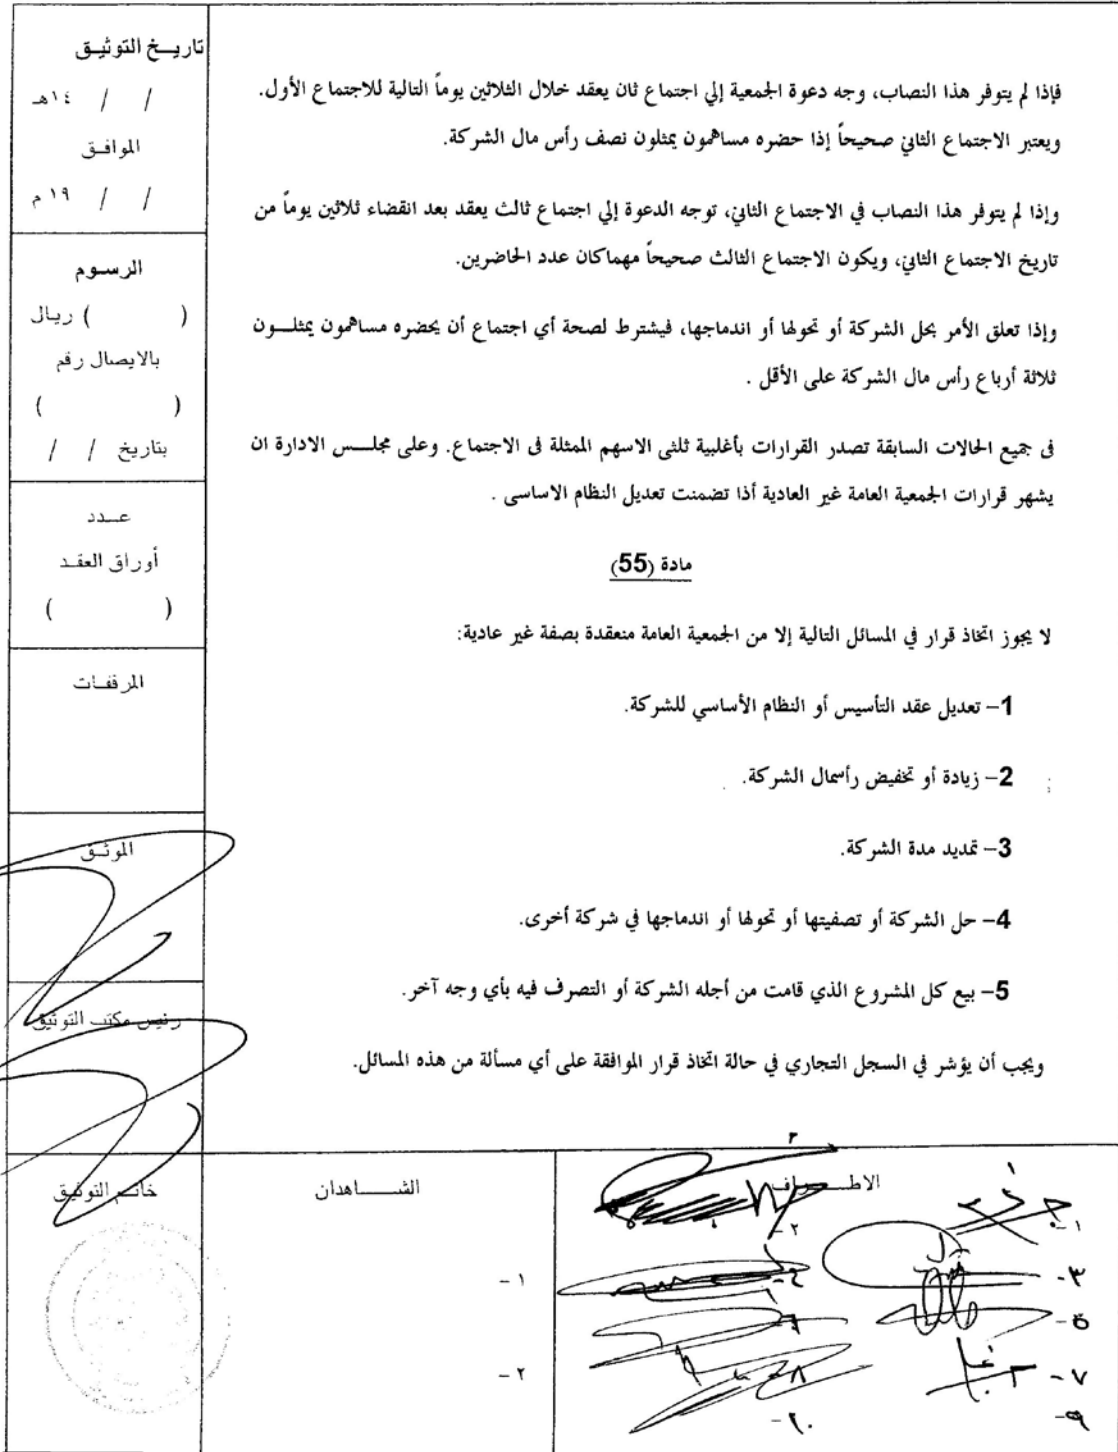 تاريخ التوثيق
/ / ١٤هـ
الموافق
/ / ١٩ م
الرسوم
( ) ريال
بالايصال رقم
( )
بتاريخ / /
عدد
أوراق العقد
( )
المرفقات
الموثق
رئيس مكتب التوثيق
خاتم التوثيق
فإذا لم يتوفر هذا النصاب، وجه دعوة الجمعية إلي اجتماع ثان يعقد خلال الثلاثين يوماً التالية للاجتماع الأول.
ويعتبر الاجتماع الثاني صحيحاً إذا حضره مساهمون يمثلون نصف رأس مال الشركة.
وإذا لم يتوفر هذا النصاب في الاجتماع الثاني، توجه الدعوة إلي اجتماع ثالث يعقد بعد انقضاء ثلاثين يوماً من
تاريخ الاجتماع الثاني، ويكون الاجتماع الثالث صحيحاً مهماكان عدد الحاضرين.
وإذا تعلق الأمر بحل الشركة أو تحولها أو اندماجها، فيشترط لصحة أي اجتماع أن يحضره مساهمون يمثلون
ثلاثة أرباع رأس مال الشركة على الأقل .
فى جميع الحالات السابقة تصدر القرارات بأغلبية ثلثى الاسهم الممثلة فى الاجتماع. وعلى مجلس الادارة ان
يشهر قرارات الجمعية العامة غير العادية أذا تضمنت تعديل النظام الاساسى .
مادة (55)
لا يجوز اتخاذ قرار في المسائل التالية إلا من الجمعية العامة منعقدة بصفة غير عادية:
1– تعديل عقد التأسيس أو النظام الأساسي للشركة.
2– زيادة أو تخفيض رأسمال الشركة.
3– تمديد مدة الشركة.
4– حل الشركة أو تصفيتها أو تحولها أو اندماجها في شركة أخرى.
5– بيع كل المشروع الذي قامت من أجله الشركة أو التصرف فيه بأي وجه آخر.
ويجب أن يؤشر في السجل التجاري في حالة اتخاذ قرار الموافقة على أي مسألة من هذه المسائل.
الاطراف
١-
٢-
٣-
٤-
٥-
٦-
٧-
٨-
٩-
١٠-
الشاهدان
١ -
٢ -